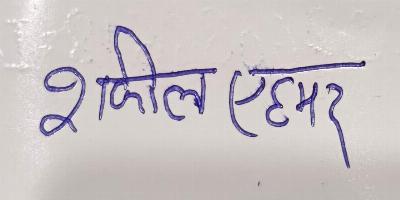 शकील एहमद